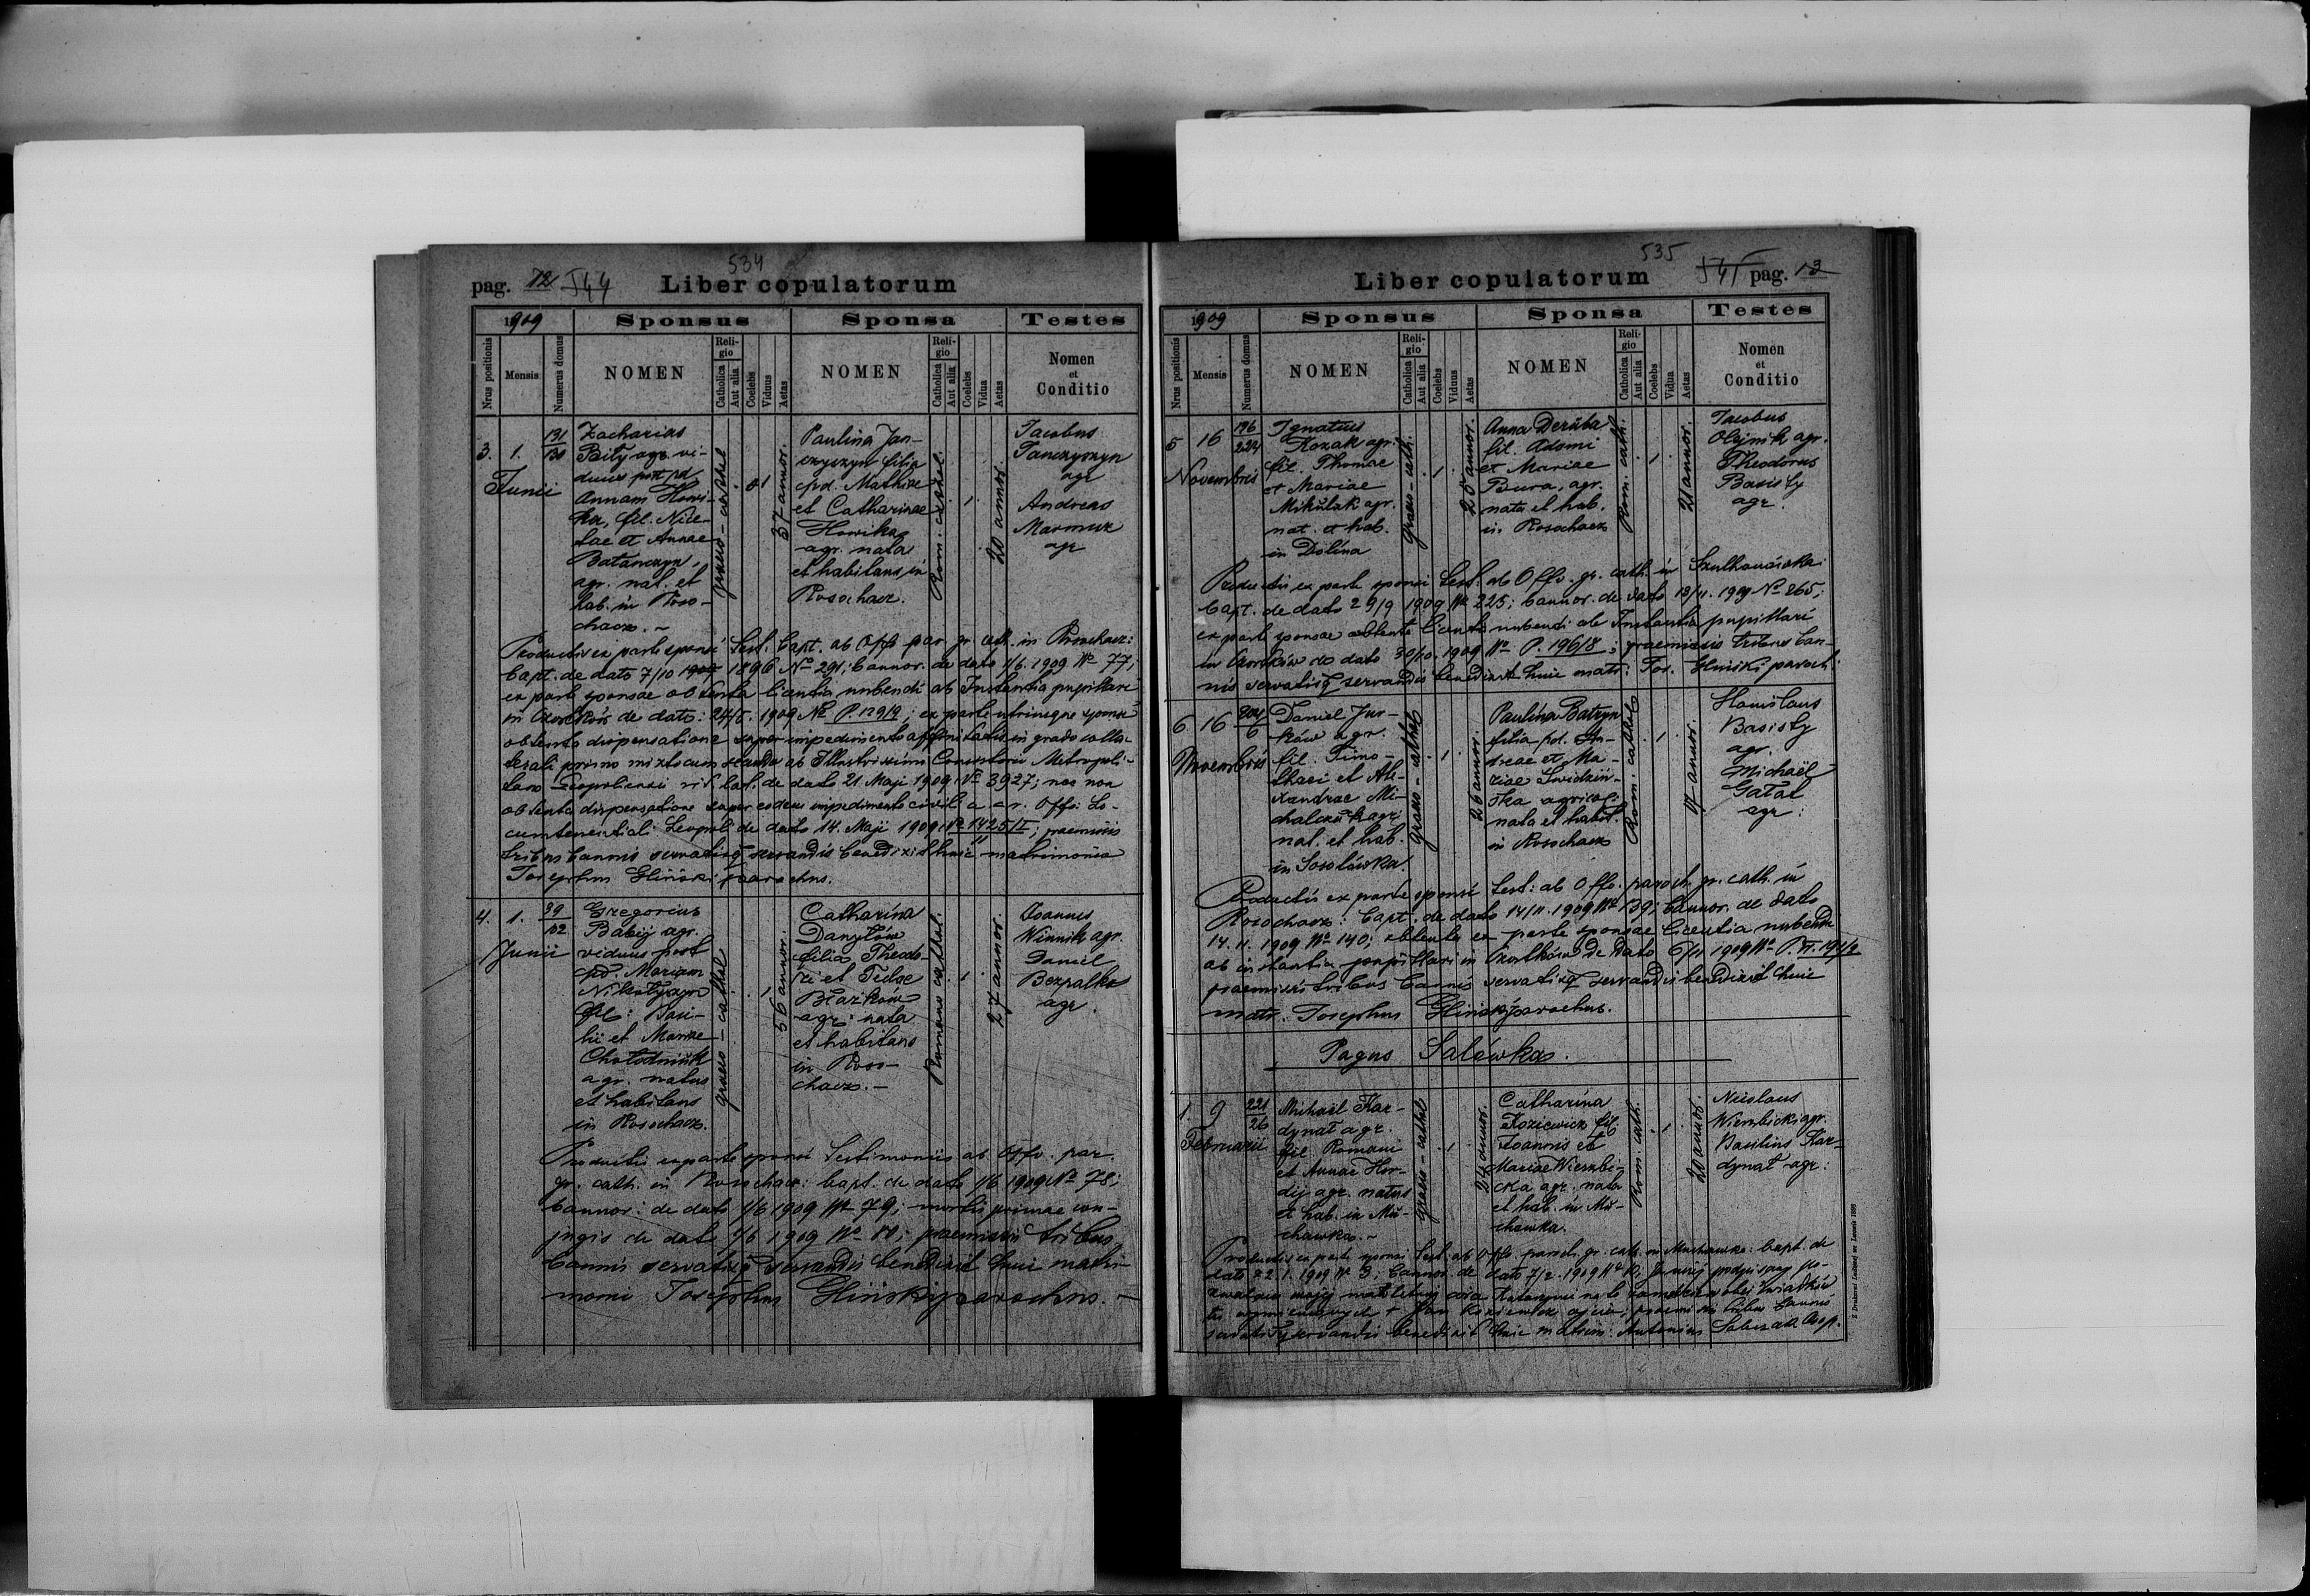 534
pag. 12 544 Liber copulatorum
1909 Sponsus Sponsa Testes
Nrus positionis Mensis Numerus domus NOMEN Religio Catholica Aut alia Coelebs Viduus Aetas NOMEN Religio Catholica Aut alia Coelebs Vidua Aetas Nomen et Conditio
3. 1. Junii
131
130
Zacharias
Bilij agr. vi-
duus post pd
Annam Howi-
ka, fil. Nice-
tae et Annae
Batanczyn,
agr. nat. et
hab. in Roso-
chacz. ~
graeco-cathol
1
37 annor.
Paulina Jan-
czyszyn filia
cpd. Mathiae
et Catharinae
Howika
agr. nata
et habitans in
Rosochacz.
Rom. cathol.
1
20 annor.
Jacobus
Janczyszyn
agr
Andreas
Marmuz
agr
Productis ex parte sponsi Test. bapt. ab Offo par. gr. cath. in Rosochacz:
bapt. de dato 7/10 1909 1896 No 291; bannor. de dato 1/6. 1909 No 77;
ex parte sponsae obtenta licentia nubendi ab Instantia pupillari
in Czortków de dato: 24/5. 1909 No P. 129/9; ex parte utriusque sponsi
obtenta dispensatione super impedimento affinitatis in gradu colla-
terali primo mixto cum secundo ab Illustrissimo Consistorio Metropoli-
tano Leopoliensi rit. lat. de dato 21 Maji 1909 No 3927; nec non
obtenta dispensatione super eodem impedimento civili a c. r. Offo Lo-
cumtenentiali Leopoli de dato 14. Maji 1909 No 1425/II; praemissis
tribus bannis servatisq servandis benedixit huic matrimonio
Josephus Gliński parochus.
4. 1. Junii
39
102
Gregorius
Babij agr.
viduus post
cpd. Mariam
Nikołyszyn
fil: Basi-
lii et Mariae
Chołodniuk
agr. natus
et habitans
in Rosochacz.
graeco-cathol
1
56 annor.
Catharina
Danyłów
filia Theodo-
ri et Teclae
Błażków
agr. nata
et habitans
in Roso-
chacz. -
Romano cathol.
1
27 annor.
Joannes
Winnik agr.
Daniel
Bezpalko
agr.
Productis ex parte sponsi Testimoniis ab Offo. par.
gr. cath. in Rosochacz: bapt. de dato 1/6 1909 No 78;
bannor: de dato 1/6 1909 No 79; mortis primae con-
jugis de dato 1/6 1909 No 80; praemissis tribus
bannis servatisq servandis benedixit huic matri-
monio Josephus Gliński parochus. -
535
Liber copulatorum 545 pag. 13
1909 Sponsus Sponsa Testes
Nrus positionis Mensis Numerus domus NOMEN Religio Catholica Aut alia Coelebs Viduus Aetas NOMEN Religio Catholica Aut alia Coelebs Vidua Aetas Nomen et Conditio
5 16 Novembris
196
224
Ignatius
Kozak agr.
fil. Thomae
et Mariae
Mikulak agr.
nat. et hab.
in Dolina
graeco-cath.
1
25 annor.
Anna Deruba
fil. Adami
et Mariae
Bura, agr.
nata et hab.
in Rosochacz
Rom. cath.
1
21 annor.
Jacobus
Olejnik agr.
Theodorus
Basisty
agr.
Productis ex parte sponsi Test. ab Offo. gr. cath. in Szulhanówka:
bapt. de dato 29/9 1909 No 225; bannor. de dato 13/11. 1909 No 265;
ex parte sponsae obtenta licentia nubendi ab Instantia pupillari
in Czortków de dato 30/10. 1909 No P. 196/8; praemissis tribus ban-
nis servatisq servandis benedixit huic matr. Jos. Gliński paroch:
6 16 Novembris
204
6
Daniel Jur-
ków agr.
fil. Timo-
thaei et Ale-
xandrae Mi-
chalczuk agr.
nat. et hab.
in Sosolówka.
graeco-cathol
1
26 annor.
Paulina Batryn
filia pd. An-
dreae et Ma-
riae Świdziń-
ska agricol.
nata et habit.
in Rosochacz
Rom. cathol
1
17 annor.
Stanislaus
Basisty
agr.
Michaël
Gatał
agr:
Productis ex parte sponsi Test: ab Offo. paroch. gr. cath. in
Rosochacz: bapt. de dato 14/11. 1909 No 139; bannor. de dato
14. 11. 1909 No 140; obtenta ex parte sponsae licentia nubendi
ab instantia pupillari in Czortków de dato 6/11 1909 No P. VI. 191/2
praemissis tribus bannis servatisq servandis benedixit huic
matr. Josephus Gliński parochus.
Pagus Salówka.
1. 9 Februarii
221
26
Michaël Kar-
dynał agr.
fil. Romani
et Annae Hor-
dij agr. natus
et hab. in Mu-
chawka. ~
graeco-cathol
1
24 annor.
Catharina
Koziewicz fil.
Joannis et
Mariae Wierzbi-
cka agr. nata
et hab. in Mu-
chawka.
Rom. cath.
1
20 annor.
Nicolaus
Wierzbicki agr.
Basilius Kar-
dynał agr:
Productis ex parte sponsi Test. ab Offo. paroch. gr. cath. in Muchawka: bapt. de
dato 22. 1. 1909 No 3; bannor. de dato 7/2. 1909 No 10; Ja niżej podpisany po-
zwalam mojej małoletniej córce Katarzynie na to zamęście w obec świadków
tu wymienionych + Jan Koziewicz ojciec; praemissis tribus bannis
servatisq servandis benedixit huic matrim. Antonius
Z Drukarni Ludowej we Lwowie 1898